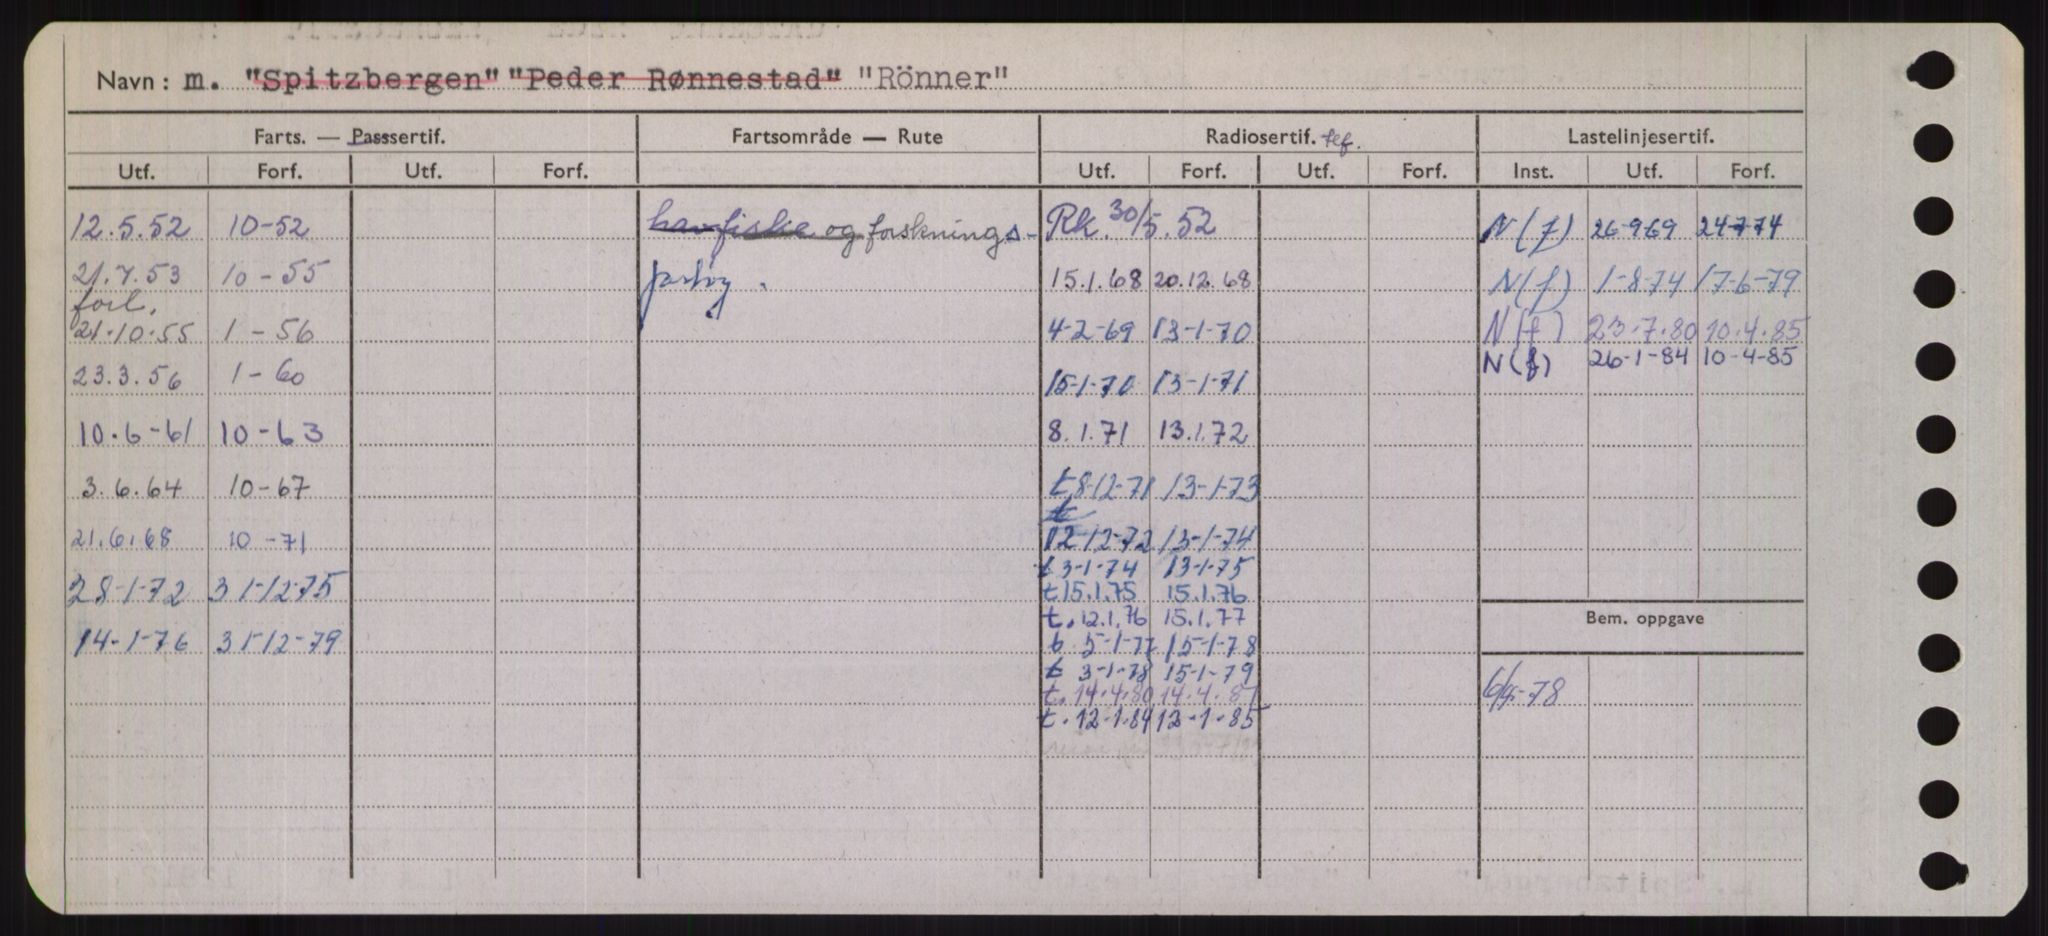 Navn: m. "Spitzbergen" "Peder Rønnestad" "Rönner"
Farts. — Passsertif. Fartsområde — Rute Radiosertif. tef. Lastelinjesertif.
Utf. Forf. Utf. Forf. Utf. Forf. Utf. Forf. Inst. Utf. Forf.
12.5.52 10-52 havfiske og forsknings- Rk. 30/5.52 N(f) 26-9-69 24-7-74
21.7.53 10-55 15.1.68 20.12.68 N(f) 1-8-74 17-6-79
forl.
21.10.55 1-56 4-2-69 13-1-70 N(f) 23.7.80 10.4.85
23.3.56 1-60 15-1-70 13-1-71 N(f) 26-1-84 10-4-85
10.6-61 10-63 8.1.71 13.1.72
3.6.64 10-67 t 8-12-71 13-1-73
t
21.6.68 10-71 12-12-72 13-1-74
t 3-1-74 13-1-75
28-1-72 31-12-75 t 15.1.75 15.1.76
t. 12.1.76 15.1.77
Bem. oppgave
14-1-76 31-12-79 t 5-1-77 15-1-78
t 3-1-78 15-1-79
t. 14.4.80 14.4.81
t. 12-1.84 12-1-85